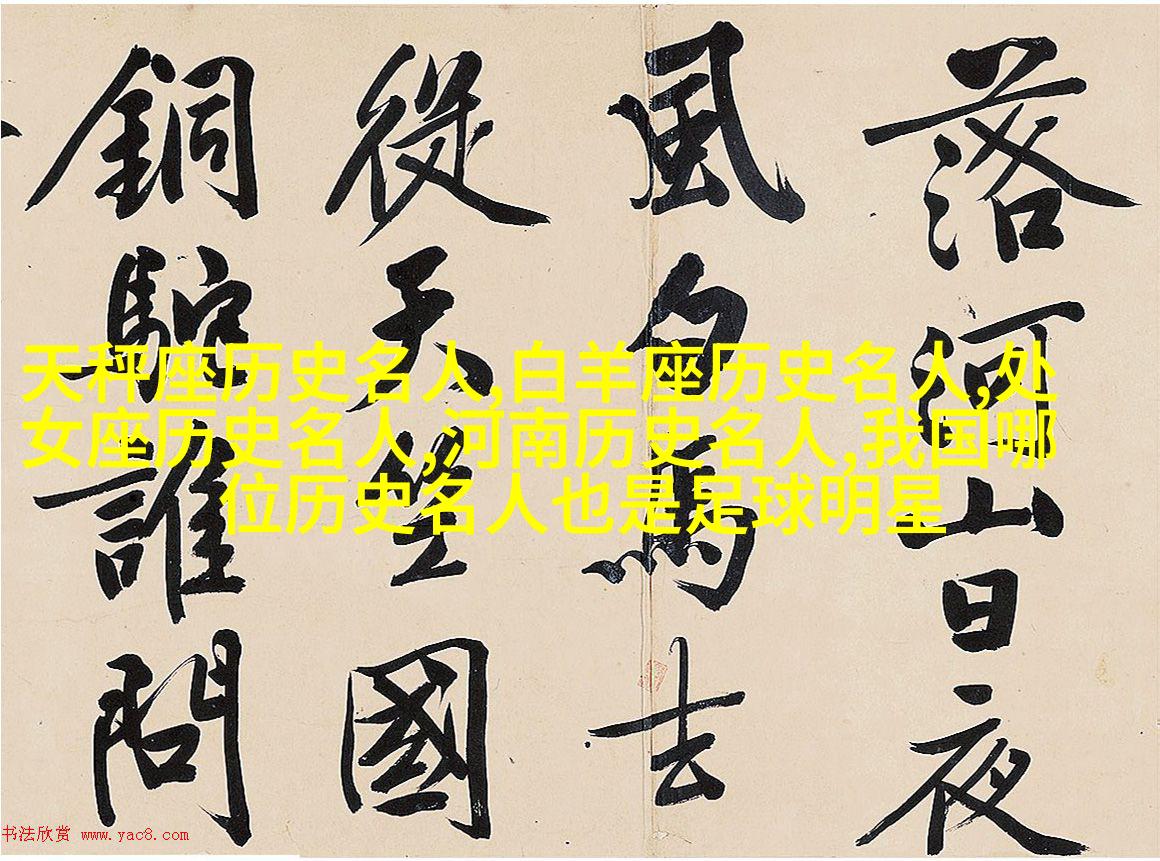 落河山日夜
風白馬去
從天竺國
銅駝誰問
天秤座历史名人,白羊座历史名人,处
女座历史名人,河南历史名人,我国哪
位历史名人也是足球明星
书法欣赏 www.yac8.com